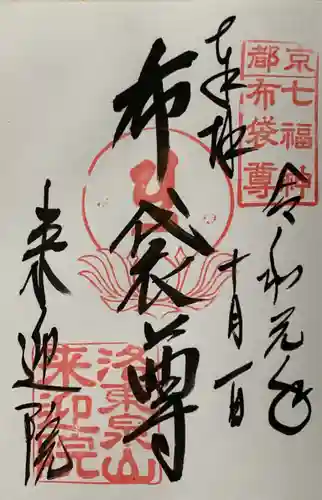 奉拝
京七福神
都布袋尊
令和元年
十月一日
布袋尊
来迎院
洛東泉山
来迎院